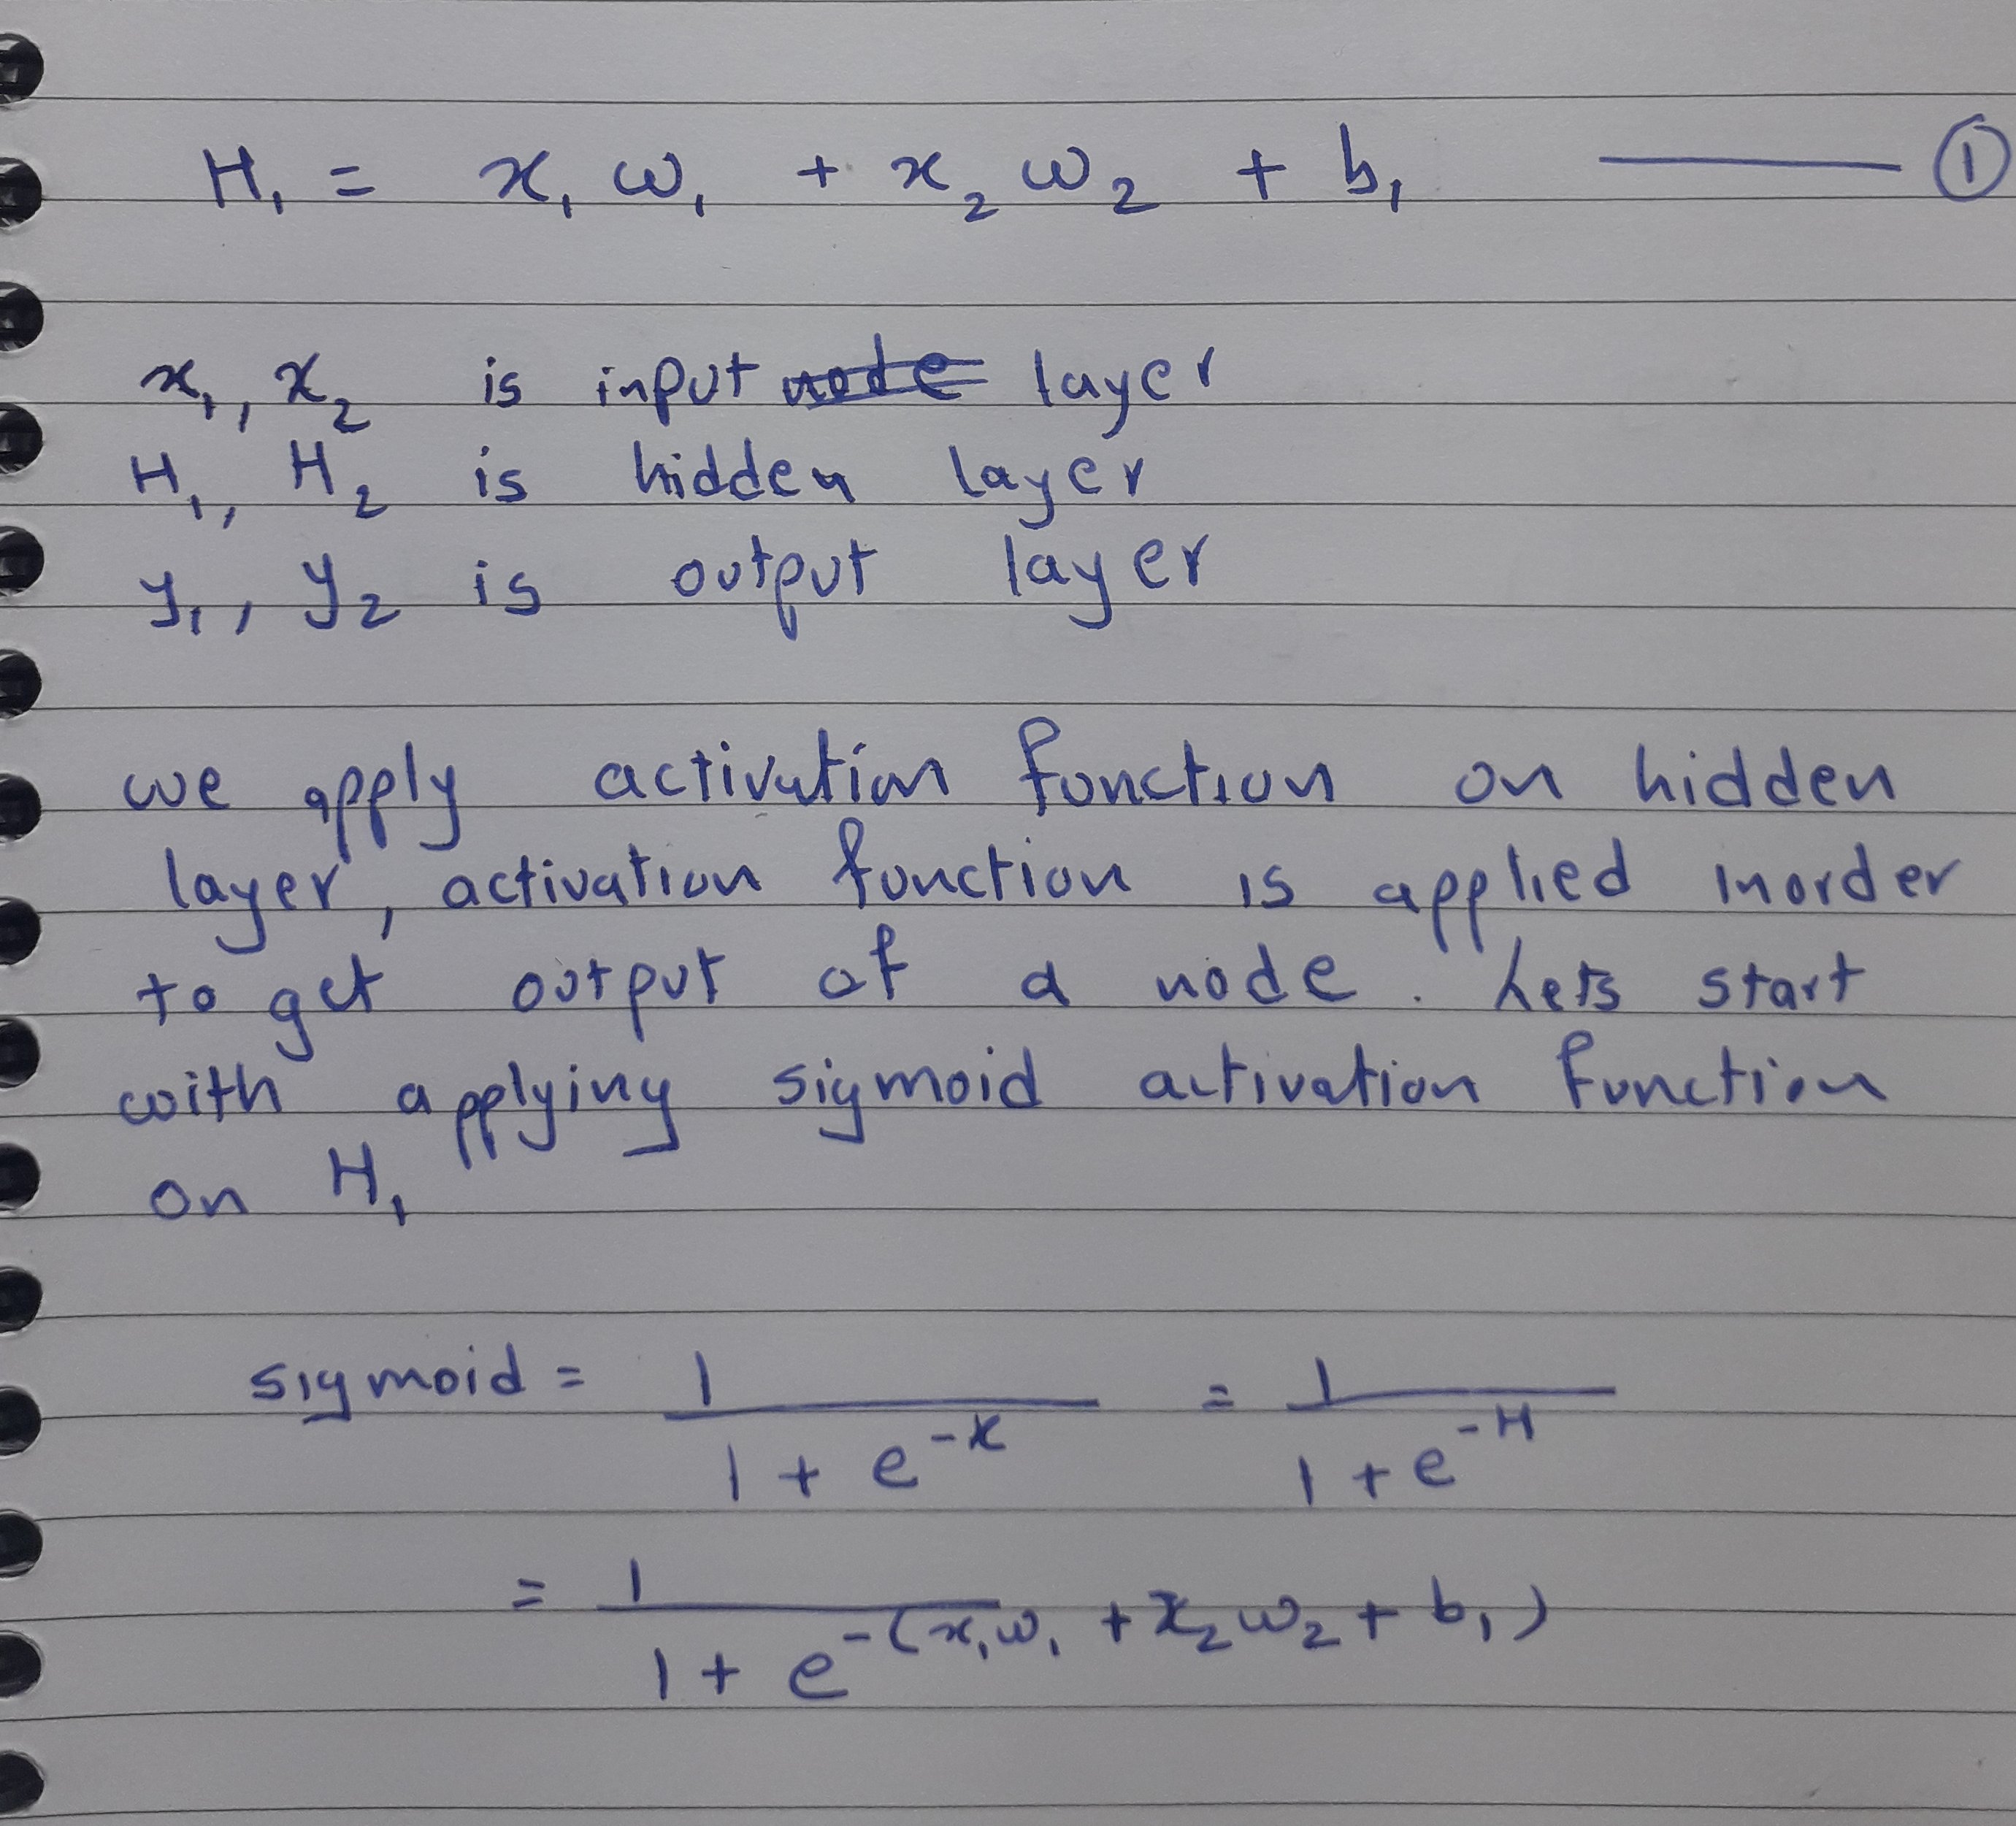 H₁ = x₁ w₁ + x₂ w₂ + b₁ ——— ①
x₁, x₂ is input ~~node~~ layer
H₁, H₂ is hidden layer
y₁, y₂ is output layer
we apply activation function on hidden
layer, activation function is applied inorder
to get output of a node. Lets start
with applying sigmoid activation function
on H₁
sigmoid = 1 / (1 + e^-x) = 1 / (1 + e^-H)
= 1 / (1 + e^-(x₁w₁ + x₂w₂ + b₁))